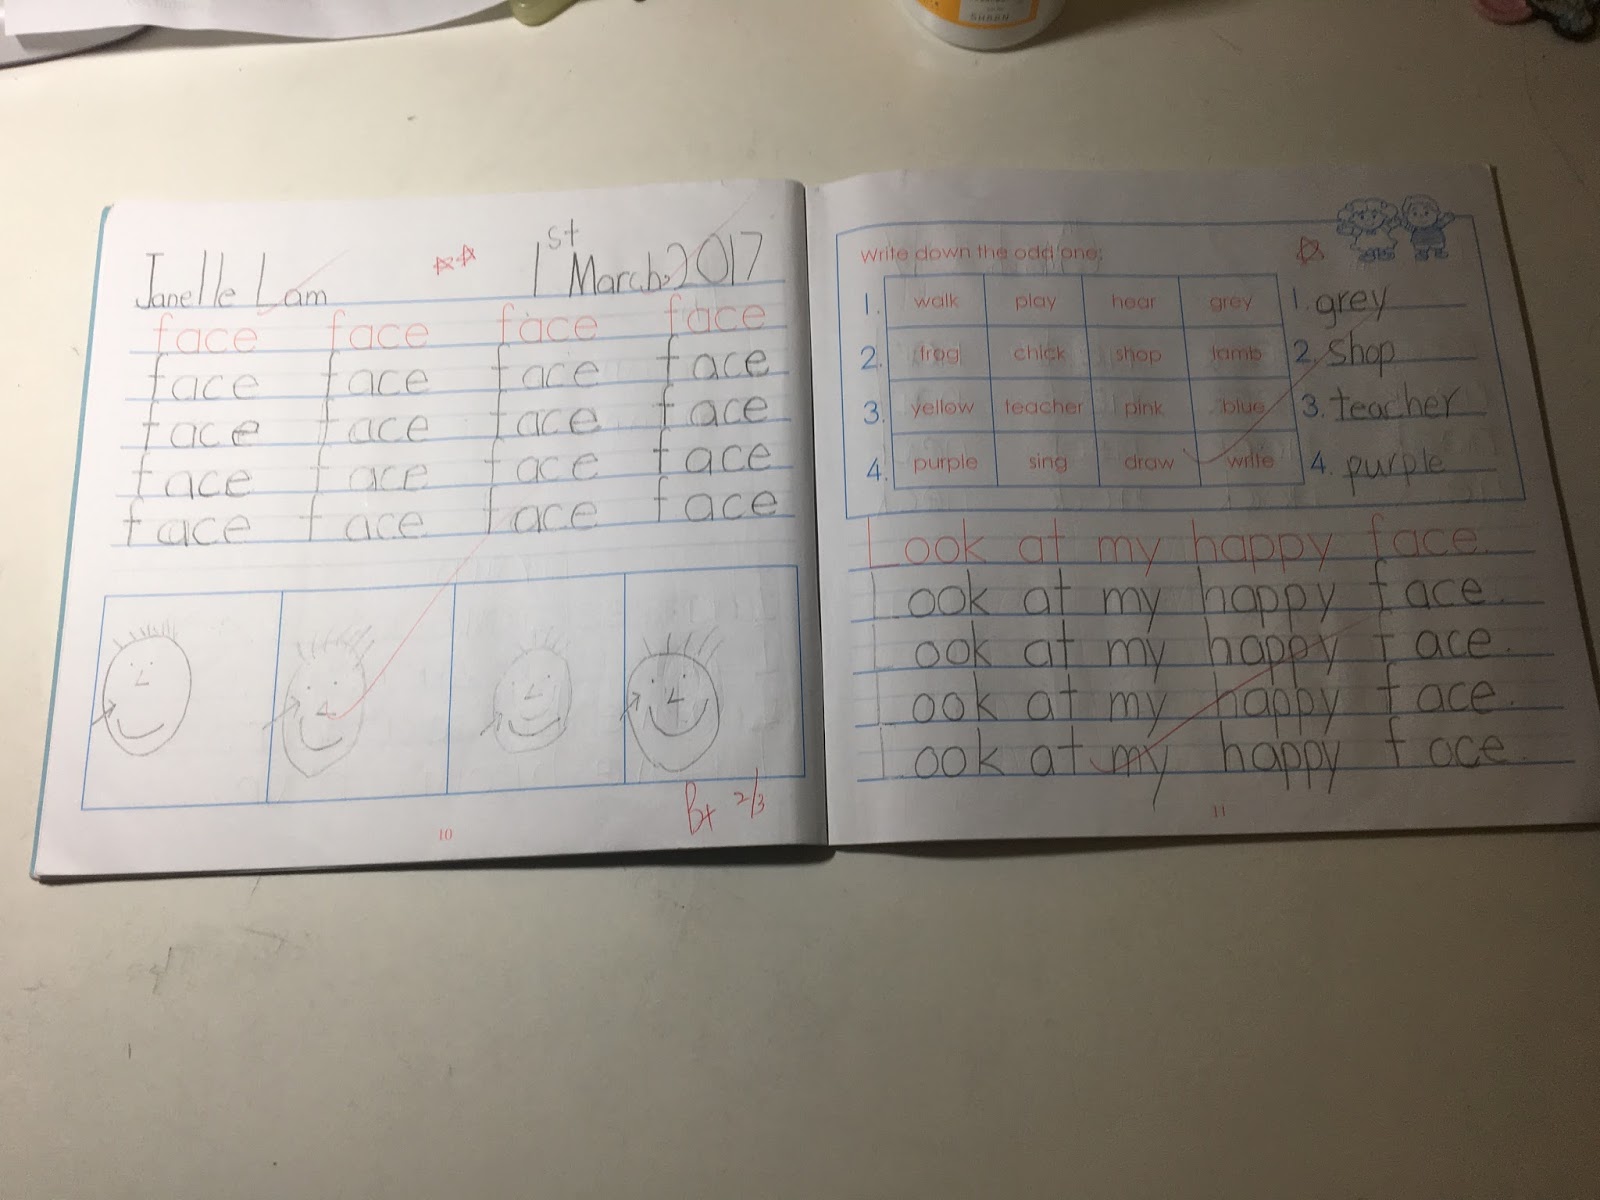 SHAAN
Janelle Lam 1st March, 2017
face face face face
face face face face
face face face face
face face face face
face face face face
B+ 2/3
10
Write down the odd one:
1. walk play hear grey 1. grey
2. frog chick shop lamb 2. shop
3. yellow teacher pink blue 3. teacher
4. purple sing draw write 4. purple
Look at my happy face.
Look at my happy face.
Look at my happy face.
Look at my happy face.
Look at my happy face.
11